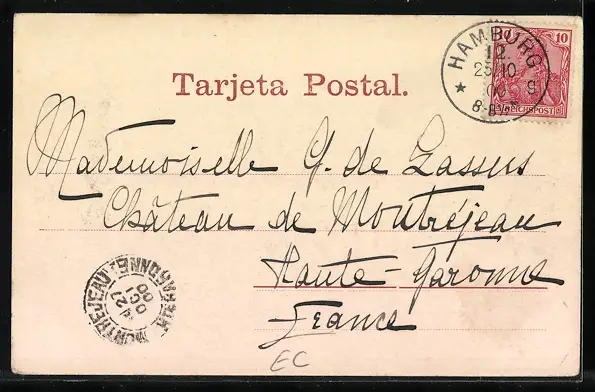 Tarjeta Postal.
HAMBURG
12.
25 10
00
8-8½N
10
REICHSPOST
Mademoiselle G. de Lassus
Château de Montréjeau
Haute-Garonne
France
MONTRÉJEAU HTE GARONNE
27
OCT
00
EC